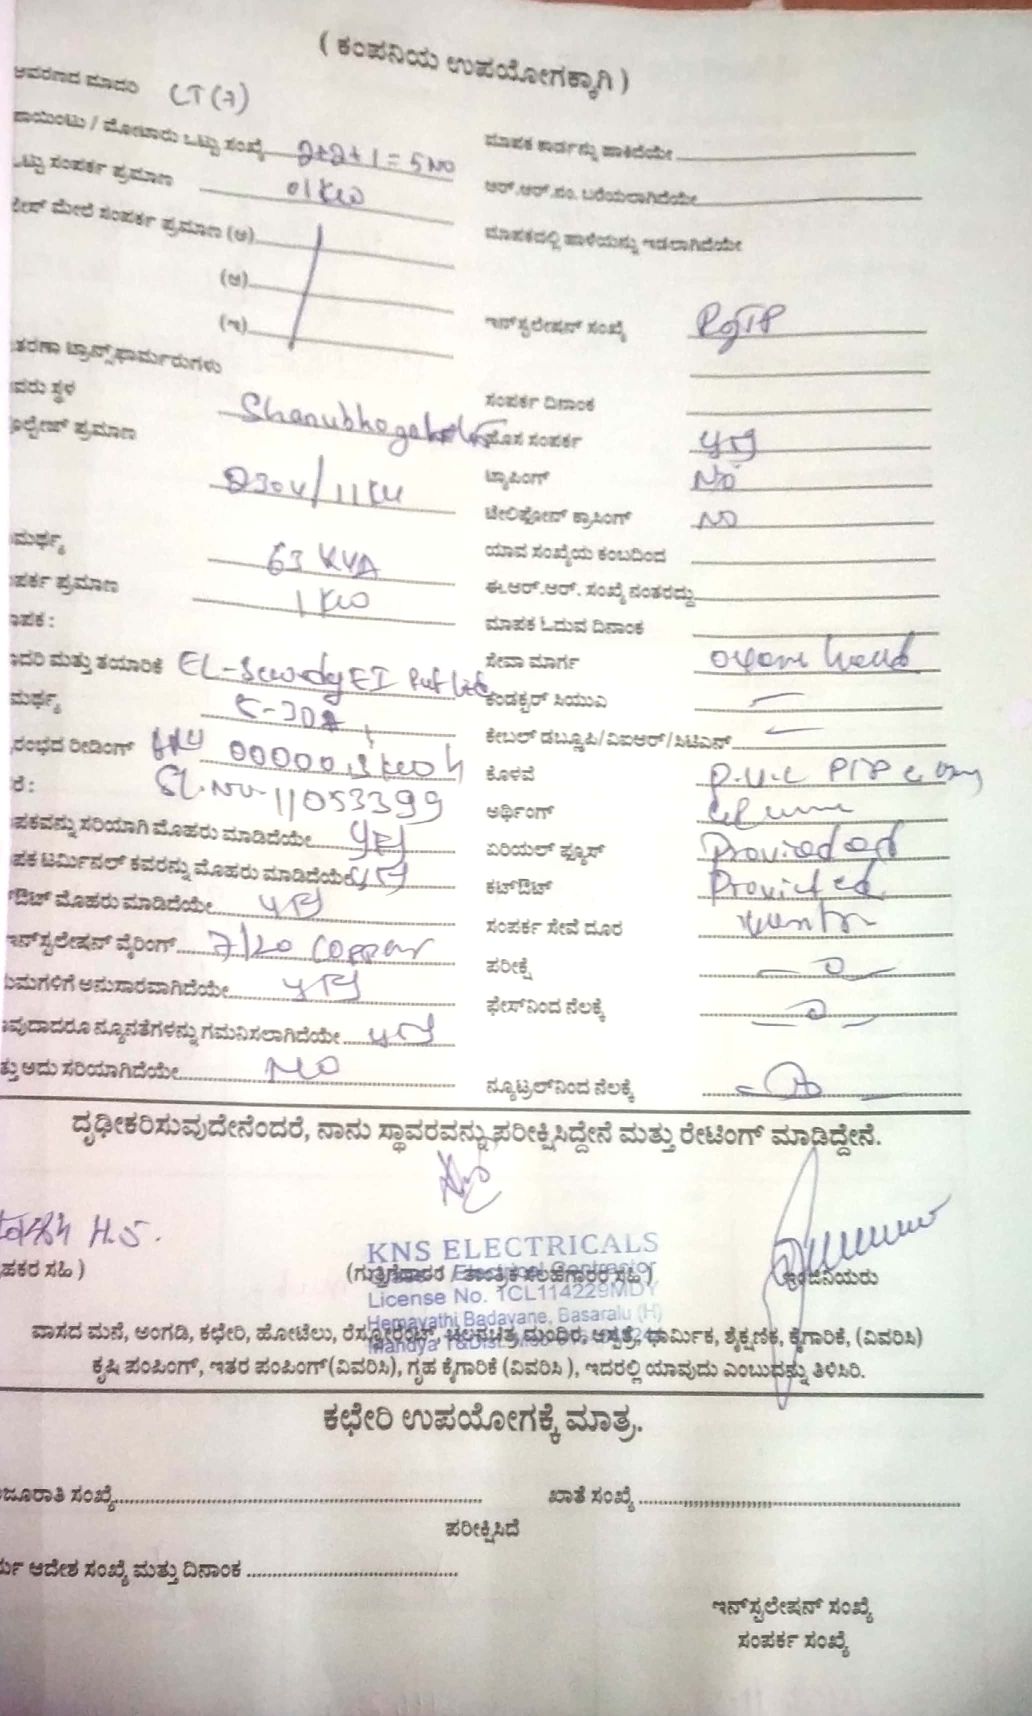 ( ಕಂಪನಿಯ ಉಪಯೋಗಕ್ಕಾಗಿ )
ಆವರಣದ ಮಾದರಿ LT (7)
ಪಾಯಿಂಟು / ಮೋಟಾರು ಒಟ್ಟು ಸಂಖ್ಯೆ 2+2+1 = 5 NO
ಒಟ್ಟು ಸಂಪರ್ಕ ಪ್ರಮಾಣ 01 KW
ಫೇಸ್ ಮೇಲೆ ಸಂಪರ್ಕ ಪ್ರಮಾಣ (ಅ)
(ಆ)
(ಇ)
ತರಣಾ ಟ್ರಾನ್ಸ್‌ಫಾರ್ಮರುಗಳು
ವರು ಸ್ಥಳ
Shanubhoga
ವೋಲ್ಟೇಜ್ ಪ್ರಮಾಣ
230V/11KV
ಮರ್ಥ್ಯ 63 KVA
ಪರ್ಕ ಪ್ರಮಾಣ 1 KW
ಾಪಕ :
ಾದರಿ ಮತ್ತು ತಯಾರಿಕೆ EL-Sewedy EI Pvt Ltd
ಮರ್ಥ್ಯ 5-30A
ರಂಭದ ರೀಡಿಂಗ್ 00000.3 KWh
Sl.No-11053399
ಪಕವನ್ನು ಸರಿಯಾಗಿ ಮೊಹರು ಮಾಡಿದೆಯೇ Yes
ಪಕ ಟರ್ಮಿನಲ್ ಕವರನ್ನು ಮೊಹರು ಮಾಡಿದೆಯೇ Yes
ಔಟ್ ಮೊಹರು ಮಾಡಿದೆಯೇ Yes
ಇನ್‌ಸ್ಟಲೇಷನ್ ವೈರಿಂಗ್ 7/20 Copper
ಯಮಗಳಿಗೆ ಅನುಸಾರವಾಗಿದೆಯೇ Yes
ವುದಾದರೂ ನ್ಯೂನತೆಗಳನ್ನು ಗಮನಿಸಲಾಗಿದೆಯೇ Yes
ತ್ತು ಅದು ಸರಿಯಾಗಿದೆಯೇ NO
ಮಾಪಕ ಕಾರ್ಡನ್ನು ಹಾಕಿದೆಯೇ
ಆರ್.ಆರ್.ನಂ. ಬರೆಯಲಾಗಿದೆಯೇ
ಮಾಪಕದಲ್ಲಿ ಹಾಳೆಯನ್ನು ಇಡಲಾಗಿದೆಯೇ
ಇನ್‌ಸ್ಟಲೇಷನ್ ಸಂಖ್ಯೆ
ಸಂಪರ್ಕ ದಿನಾಂಕ
ಹೊಸ ಸಂಪರ್ಕ Yes
ಟ್ಯಾಪಿಂಗ್ No
ಟೇಲಿಫೋನ್ ಕ್ರಾಸಿಂಗ್ NO
ಯಾವ ಸಂಖ್ಯೆಯ ಕಂಬದಿಂದ
ಈ.ಆರ್.ಆರ್. ಸಂಖ್ಯೆ ನಂತರದ್ದು
ಮಾಪಕ ಓದುವ ದಿನಾಂಕ
ಸೇವಾ ಮಾರ್ಗ
ಕಂಡಕ್ಟರ್ ಸಿಯುಎ —
ಕೇಬಲ್ ಡಬ್ಲ್ಯೂಪಿ/ವಿಐಆರ್/ಸಿಟಿಎಸ್ —
ಕೊಳವೆ P.V.C PIPE
ಅರ್ಥಿಂಗ್
ಏರಿಯಲ್ ಫ್ಯೂಸ್ Provieded
ಕಟ್‌ಔಟ್ Provided
ಸಂಪರ್ಕ ಸೇವೆ ದೂರ
ಪರೀಕ್ಷೆ — 0 —
ಫೇಸ್‌ನಿಂದ ನೆಲಕ್ಕೆ — 0 —
ನ್ಯೂಟ್ರಲ್‌ನಿಂದ ನೆಲಕ್ಕೆ
ದೃಢೀಕರಿಸುವುದೇನೆಂದರೆ, ನಾನು ಸ್ಥಾವರವನ್ನು ಪರೀಕ್ಷಿಸಿದ್ದೇನೆ ಮತ್ತು ರೇಟಿಂಗ್ ಮಾಡಿದ್ದೇನೆ.
H.S.
ಹಕರ ಸಹಿ )
KNS ELECTRICALS
(ಗುತ್ತಿಗೆದಾರರ / ತಾಂತ್ರಿಕ ಸಲಹೆಗಾರರ ಸಹಿ )
Electrical Contractor
License No. 1CL114229MDY
Hemavathi Badavane, Basaralu (H)
ಇಂಜಿನಿಯರು
ವಾಸದ ಮನೆ, ಅಂಗಡಿ, ಕಛೇರಿ, ಹೋಟೆಲು, ರೆಸ್ಟೋರೆಂಟ್, ಚಲನಚಿತ್ರ ಮಂದಿರ, ಆಸ್ಪತ್ರೆ, ಧಾರ್ಮಿಕ, ಶೈಕ್ಷಣಿಕ, ಕೈಗಾರಿಕೆ, (ವಿವರಿಸಿ)
ಕೃಷಿ ಪಂಪಿಂಗ್, ಇತರ ಪಂಪಿಂಗ್(ವಿವರಿಸಿ), ಗೃಹ ಕೈಗಾರಿಕೆ (ವಿವರಿಸಿ ), ಇದರಲ್ಲಿ ಯಾವುದು ಎಂಬುದನ್ನು ತಿಳಿಸಿರಿ.
ಕಛೇರಿ ಉಪಯೋಗಕ್ಕೆ ಮಾತ್ರ.
ಜೂರಾತಿ ಸಂಖ್ಯೆ
ಖಾತೆ ಸಂಖ್ಯೆ
ಪರೀಕ್ಷಿಸಿದೆ
ರ್ಯ ಆದೇಶ ಸಂಖ್ಯೆ ಮತ್ತು ದಿನಾಂಕ
ಇನ್‌ಸ್ಟಲೇಷನ್ ಸಂಖ್ಯೆ
ಸಂಪರ್ಕ ಸಂಖ್ಯೆ